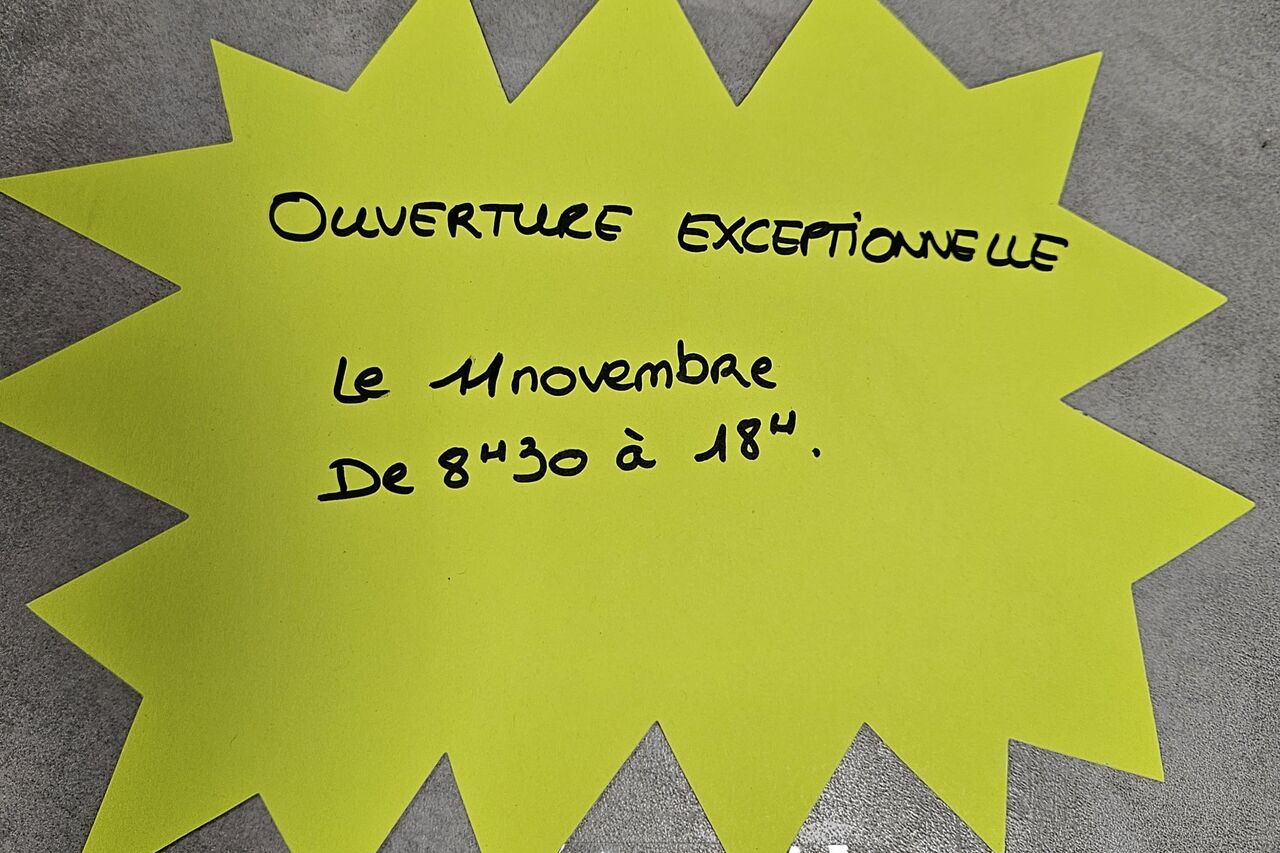 OUVERTURE EXCEPTIONNELLE
Le 11 novembre
De 8H30 à 18H.